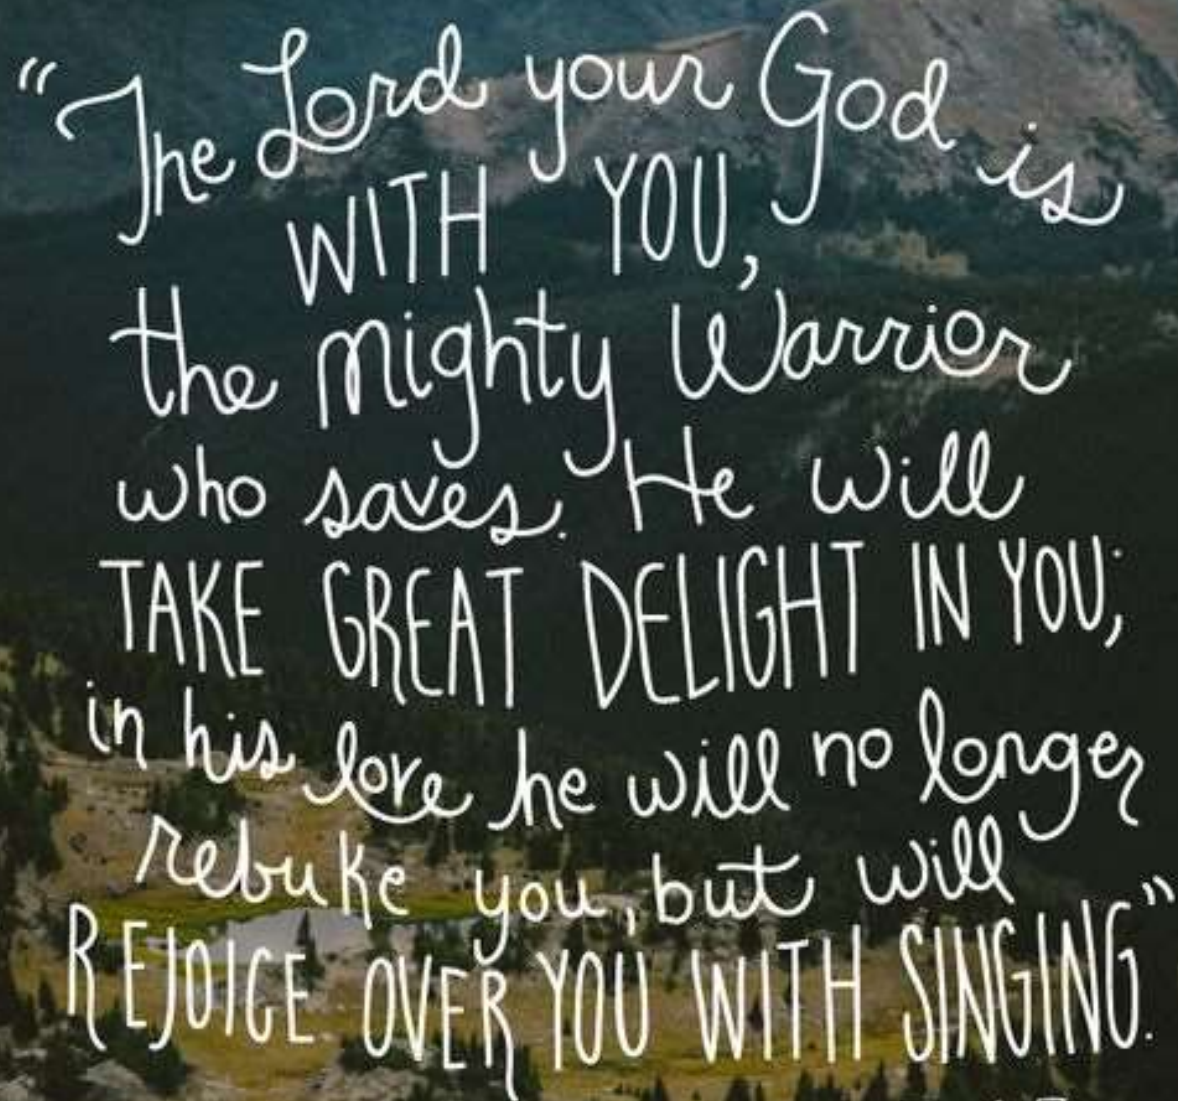 “The Lord your God is
WITH YOU,
the mighty Warrior
who saves. He will
TAKE GREAT DELIGHT IN YOU;
in his love he will no longer
rebuke you, but will
REJOICE OVER YOU WITH SINGING.”